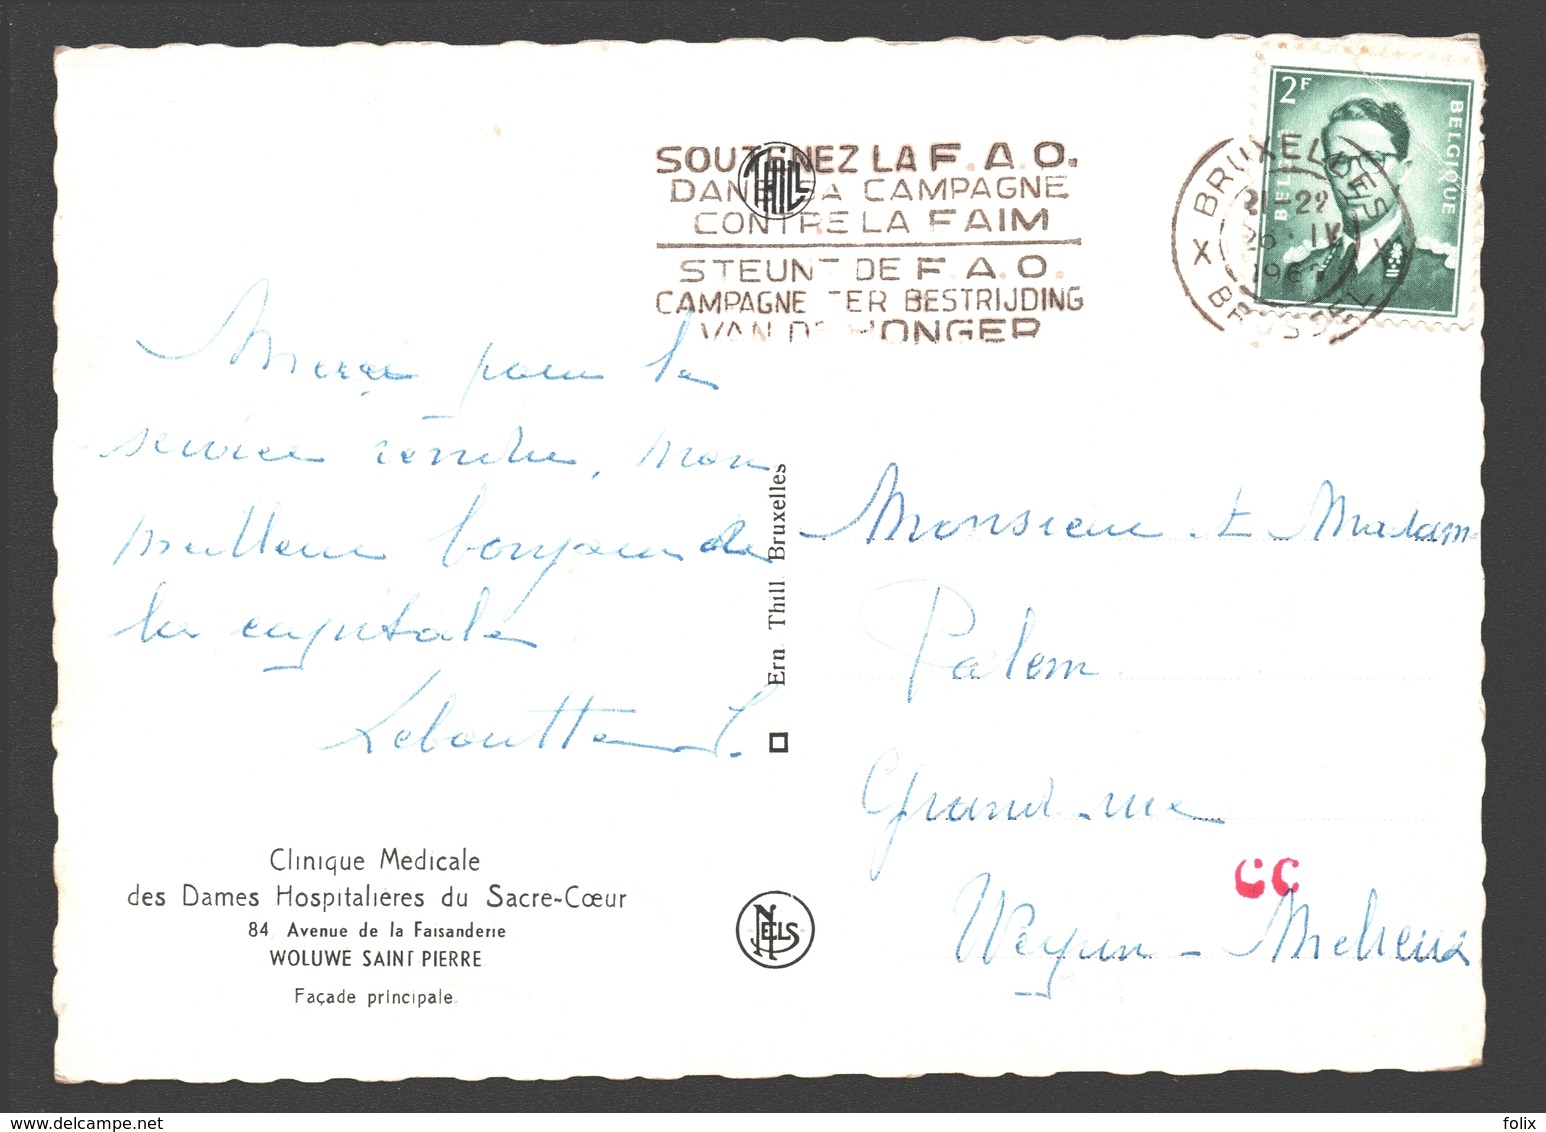 SOUTENEZ LA F.A.O.
DANS SA CAMPAGNE
CONTRE LA FAIM
STEUNT DE F.A.O.
CAMPAGNE TER BESTRIJDING
VAN DE HONGER
THILL
BRUXELLES X
21-22
26 IV
196
X BRUSSEL
2F
BELGIE
BELGIQUE
Merci pour le
service rendu, mon
meilleur bonjour de
la capitale
Leboutte J.
Ern Thill Bruxelles
Monsieur et Madame
Palem
Grand-rue
Weyen-
cc
Clinique Medicale
des Dames Hospitalières du Sacre-Cœur
84, Avenue de la Faisanderie
WOLUWE SAINT PIERRE
Façade principale
NELS
delcampe.net
folix